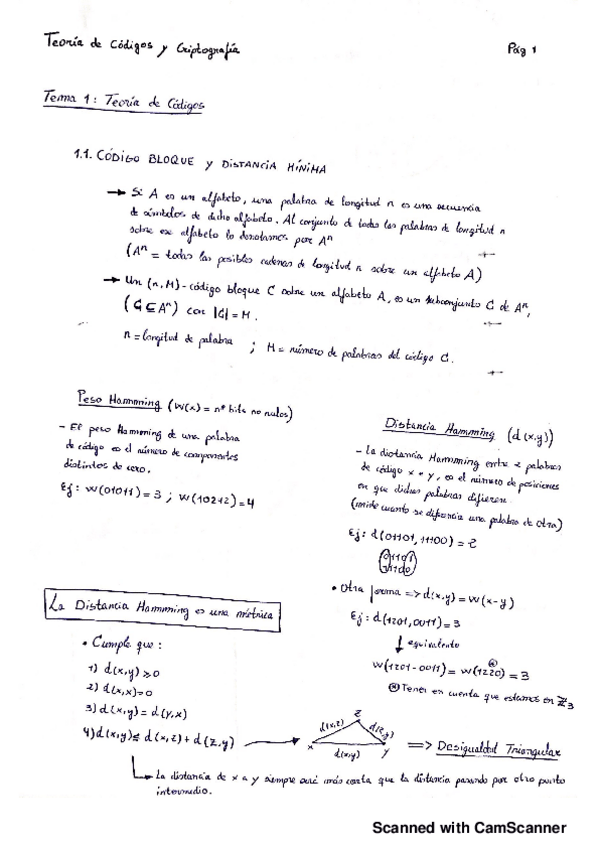 Teoría de Códigos y Criptografía
Pág 1
Tema 1: Teoría de Códigos
1.1. CÓDIGO BLOQUE y DISTANCIA MÍNIMA
→ Si A es un alfabeto, una palabra de longitud n es una secuencia
de símbolos de dicho alfabeto. Al conjunto de todas las palabras de longitud n
sobre ese alfabeto lo denotamos por Aⁿ
(Aⁿ = todas las posibles cadenas de longitud n sobre un alfabeto A)
→ Un (n, M)-código bloque C sobre un alfabeto A, es un subconjunto C de Aⁿ,
(C ⊆ Aⁿ) con |C| = M.
n = longitud de palabra ; M = número de palabras del código C.
Peso Hamming (W(x) = nº bits no nulos)
- El peso Hamming de una palabra
de código es el número de componentes
distintos de cero.
Ej: W(01011) = 3 ; W(10212) = 4
Distancia Hamming (d(x,y))
- La distancia Hamming entre 2 palabras
de código x e y, es el número de posiciones
en que dichas palabras difieren
(mide cuanto se diferencia una palabra de otra)
Ej: d(01101, 11100) = 2
01101
11100
• Otra forma => d(x,y) = W(x-y)
Ej: d(1201, 0011) = 3
↓ equivalente
W(1201-0011) = W(1220) = 3
⊛ Tener en cuenta que estamos en Z₃
La Distancia Hamming es una métrica
• Cumple que:
1) d(x,y) ≥ 0
2) d(x,x) = 0
3) d(x,y) = d(y,x)
4) d(x,y) ≤ d(x,z) + d(z,y)
z
d(x,z) d(z,y)
x y
d(x,y)
=> Desigualdad Triangular
La distancia de x a y siempre será más corta que la distancia pasando por otro punto
intermedio.
Scanned with CamScanner